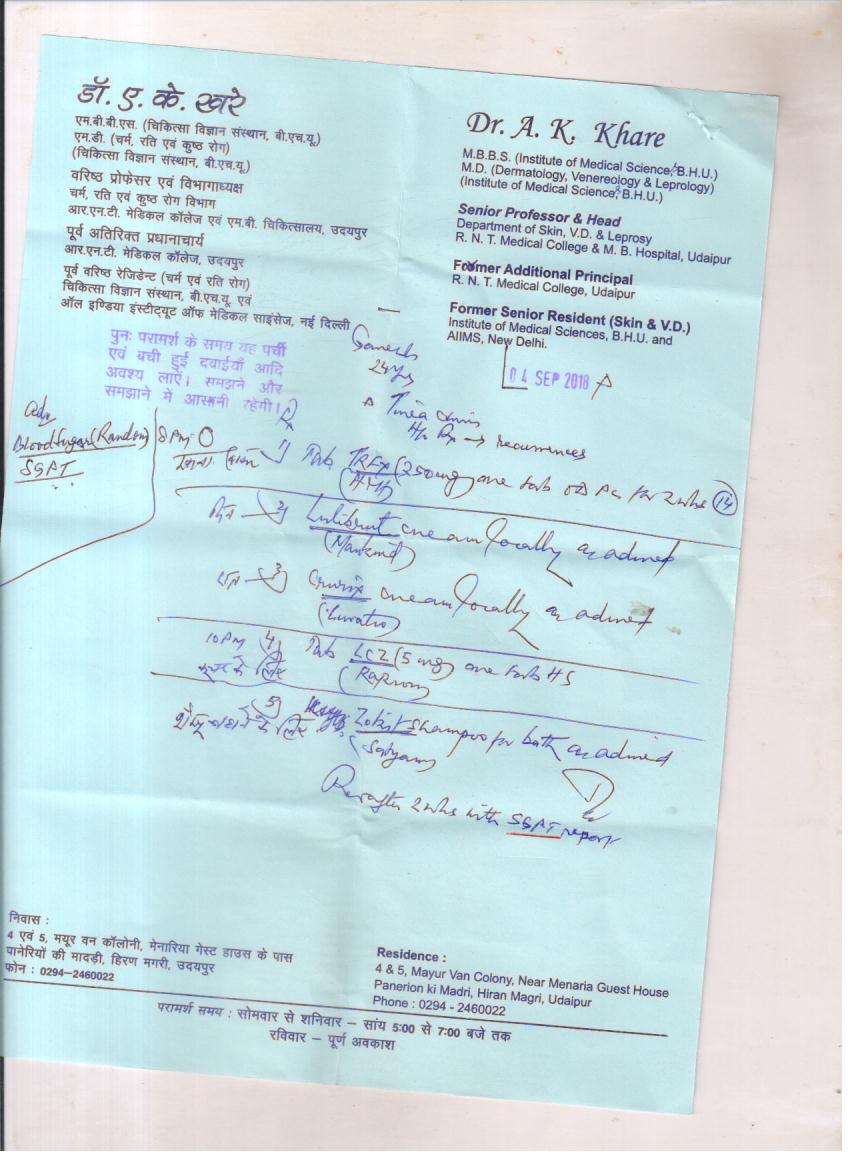 डॉ. ए. के. खरे
एम.बी.बी.एस. (चिकित्सा विज्ञान संस्थान, बी.एच.यू.)
एम.डी. (चर्म, रति एवं कुष्ठ रोग)
(चिकित्सा विज्ञान संस्थान, बी.एच.यू.)
वरिष्ठ प्रोफेसर एवं विभागाध्यक्ष
चर्म, रति एवं कुष्ठ रोग विभाग
आर.एन.टी. मेडिकल कॉलेज एवं एम.बी. चिकित्सालय, उदयपुर
पूर्व अतिरिक्त प्रधानाचार्य
आर.एन.टी. मेडिकल कॉलेज, उदयपुर
पूर्व वरिष्ठ रेजिडेन्ट (चर्म एवं रति रोग)
चिकित्सा विज्ञान संस्थान, बी.एच.यू. एवं
ऑल इण्डिया इंस्टीट्यूट ऑफ मेडिकल साइंसेज, नई दिल्ली
Dr. A. K. Khare
M.B.B.S. (Institute of Medical Science, B.H.U.)
M.D. (Dermatology, Venereology & Leprology)
(Institute of Medical Science, B.H.U.)
Senior Professor & Head
Department of Skin, V.D. & Leprosy
R. N. T. Medical College & M. B. Hospital, Udaipur
Former Additional Principal
R. N. T. Medical College, Udaipur
Former Senior Resident (Skin & V.D.)
Institute of Medical Sciences, B.H.U. and
AIIMS, New Delhi.
पुनः परामर्श के समय यह पर्ची
एवं बची हुई दवाईयाँ आदि
अवश्य लाएें। समझने और
समझाने में आसानी रहेगी।
Ganesh
24 yrs
04 SEP 2018
Tinea
H/o Rx → recurrences
Adv
Blood Sugar (Random)
SGPT
Rx
8 PM
1) Tab (250 mg) one tab OD PC for 2 wks 14
2) cream locally as advised
(Mankind)
3) cream locally as advised
10 PM 4) Tab LCZ (5 mg) one tab HS
के लिए
5) shampoo for bath as advised
के लिए
(Satyam)
Rev after 2 wks with SGPT report
निवास :
4 एवं 5, मयूर वन कॉलोनी, मेनारिया गेस्ट हाउस के पास
पानेरियों की मादड़ी, हिरण मगरी, उदयपुर
फोन : 0294-2460022
Residence :
4 & 5, Mayur Van Colony, Near Menaria Guest House
Panerion ki Madri, Hiran Magri, Udaipur
Phone : 0294 - 2460022
परामर्श समय : सोमवार से शनिवार – सांय 5:00 से 7:00 बजे तक
रविवार – पूर्ण अवकाश